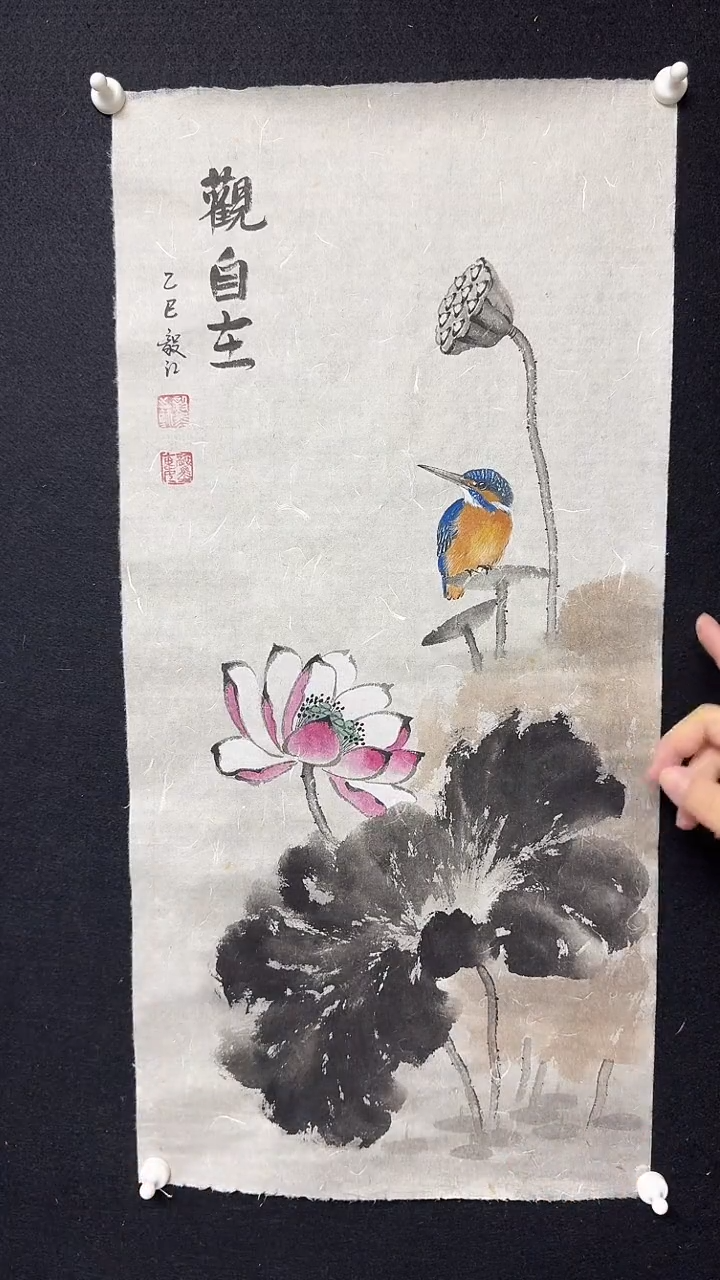 觀自在
乙巳毅江